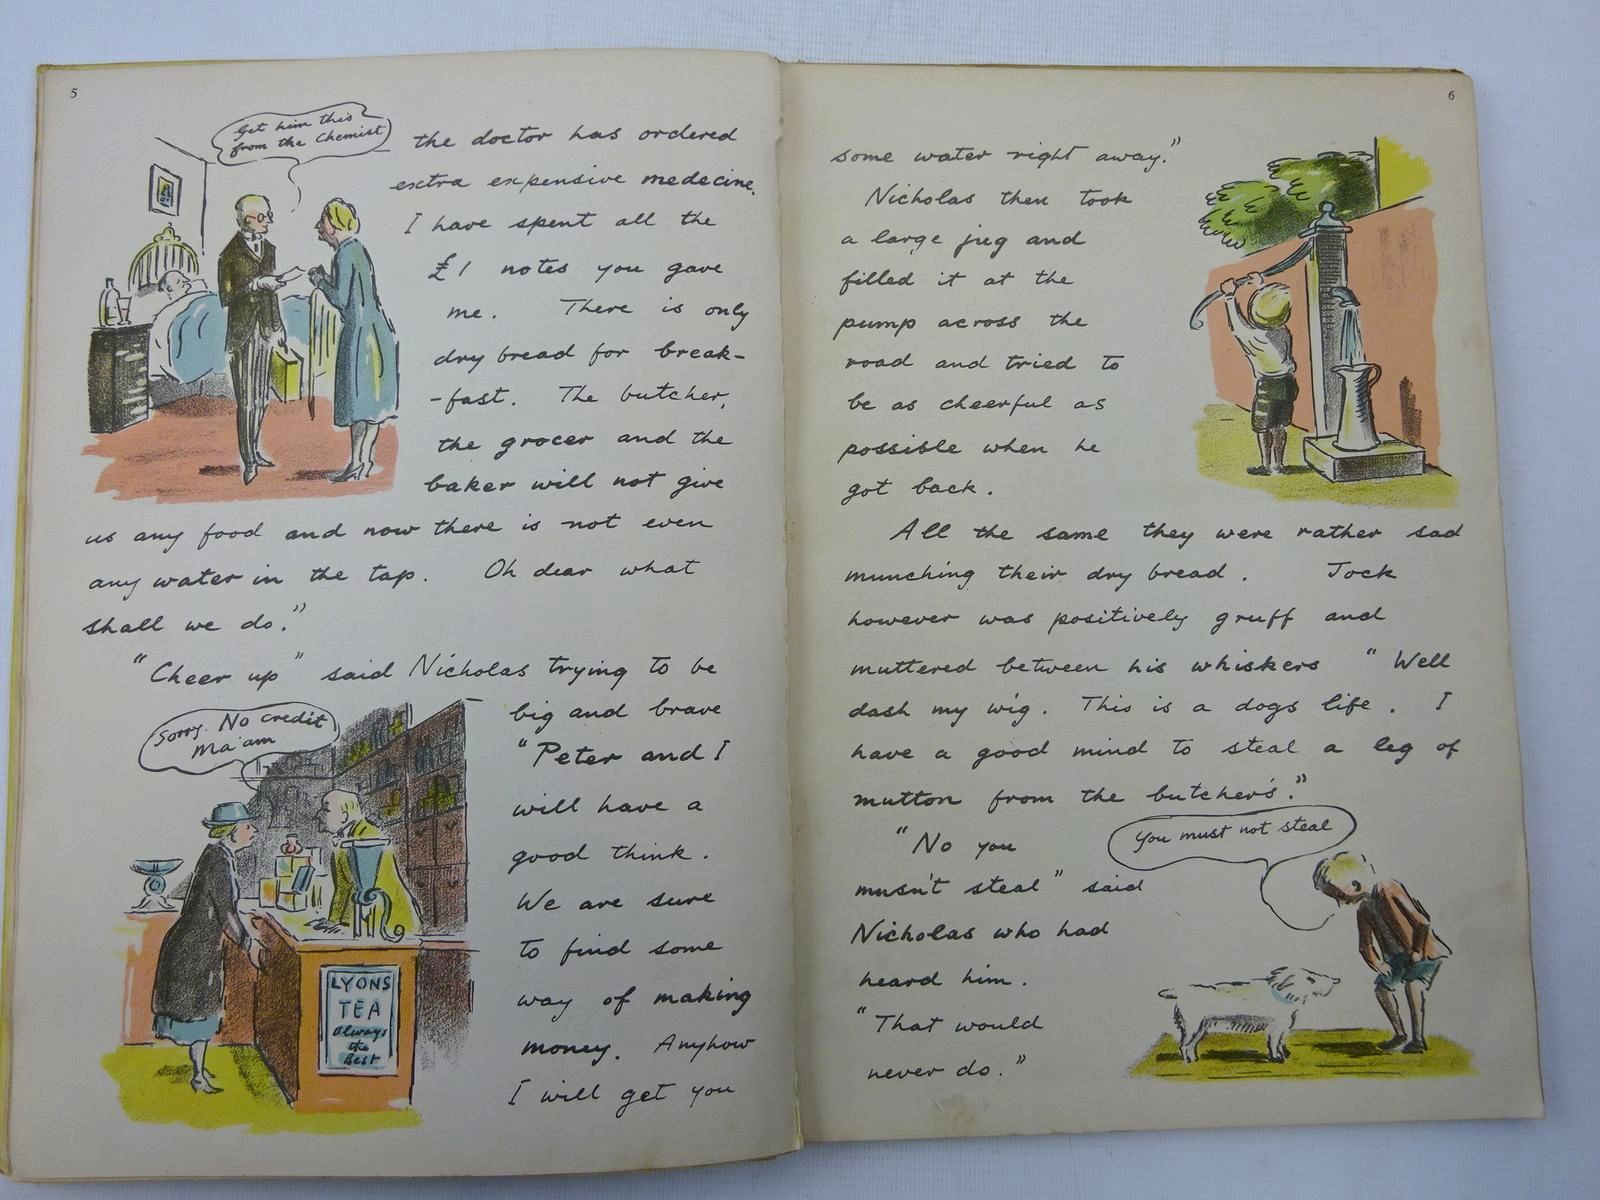 5
Get him this
from the Chemist
the doctor has ordered
extra expensive medecine.
I have spent all the
£1 notes you gave
me. There is only
dry bread for break-
-fast. The butcher,
the grocer and the
baker will not give
us any food and now there is not even
any water in the tap. Oh dear what
shall we do."
"Cheer up" said Nicholas trying to be
big and brave
"Peter and I
will have a
good think.
We are sure
to find some
way of making
money. Anyhow
I will get you
Sorry. No credit
Ma'am
LYONS
TEA
Always
the
Best
6
some water right away."
Nicholas then took
a large jug and
filled it at the
pump across the
road and tried to
be as cheerful as
possible when he
got back.
All the same they were rather sad
munching their dry bread. Jock
however was positively gruff and
muttered between his whiskers "Well
dash my wig. This is a dogs life. I
have a good mind to steal a leg of
mutton from the butcher's."
"No you
musn't steal" said
Nicholas who had
heard him.
"That would
never do."
You must not steal